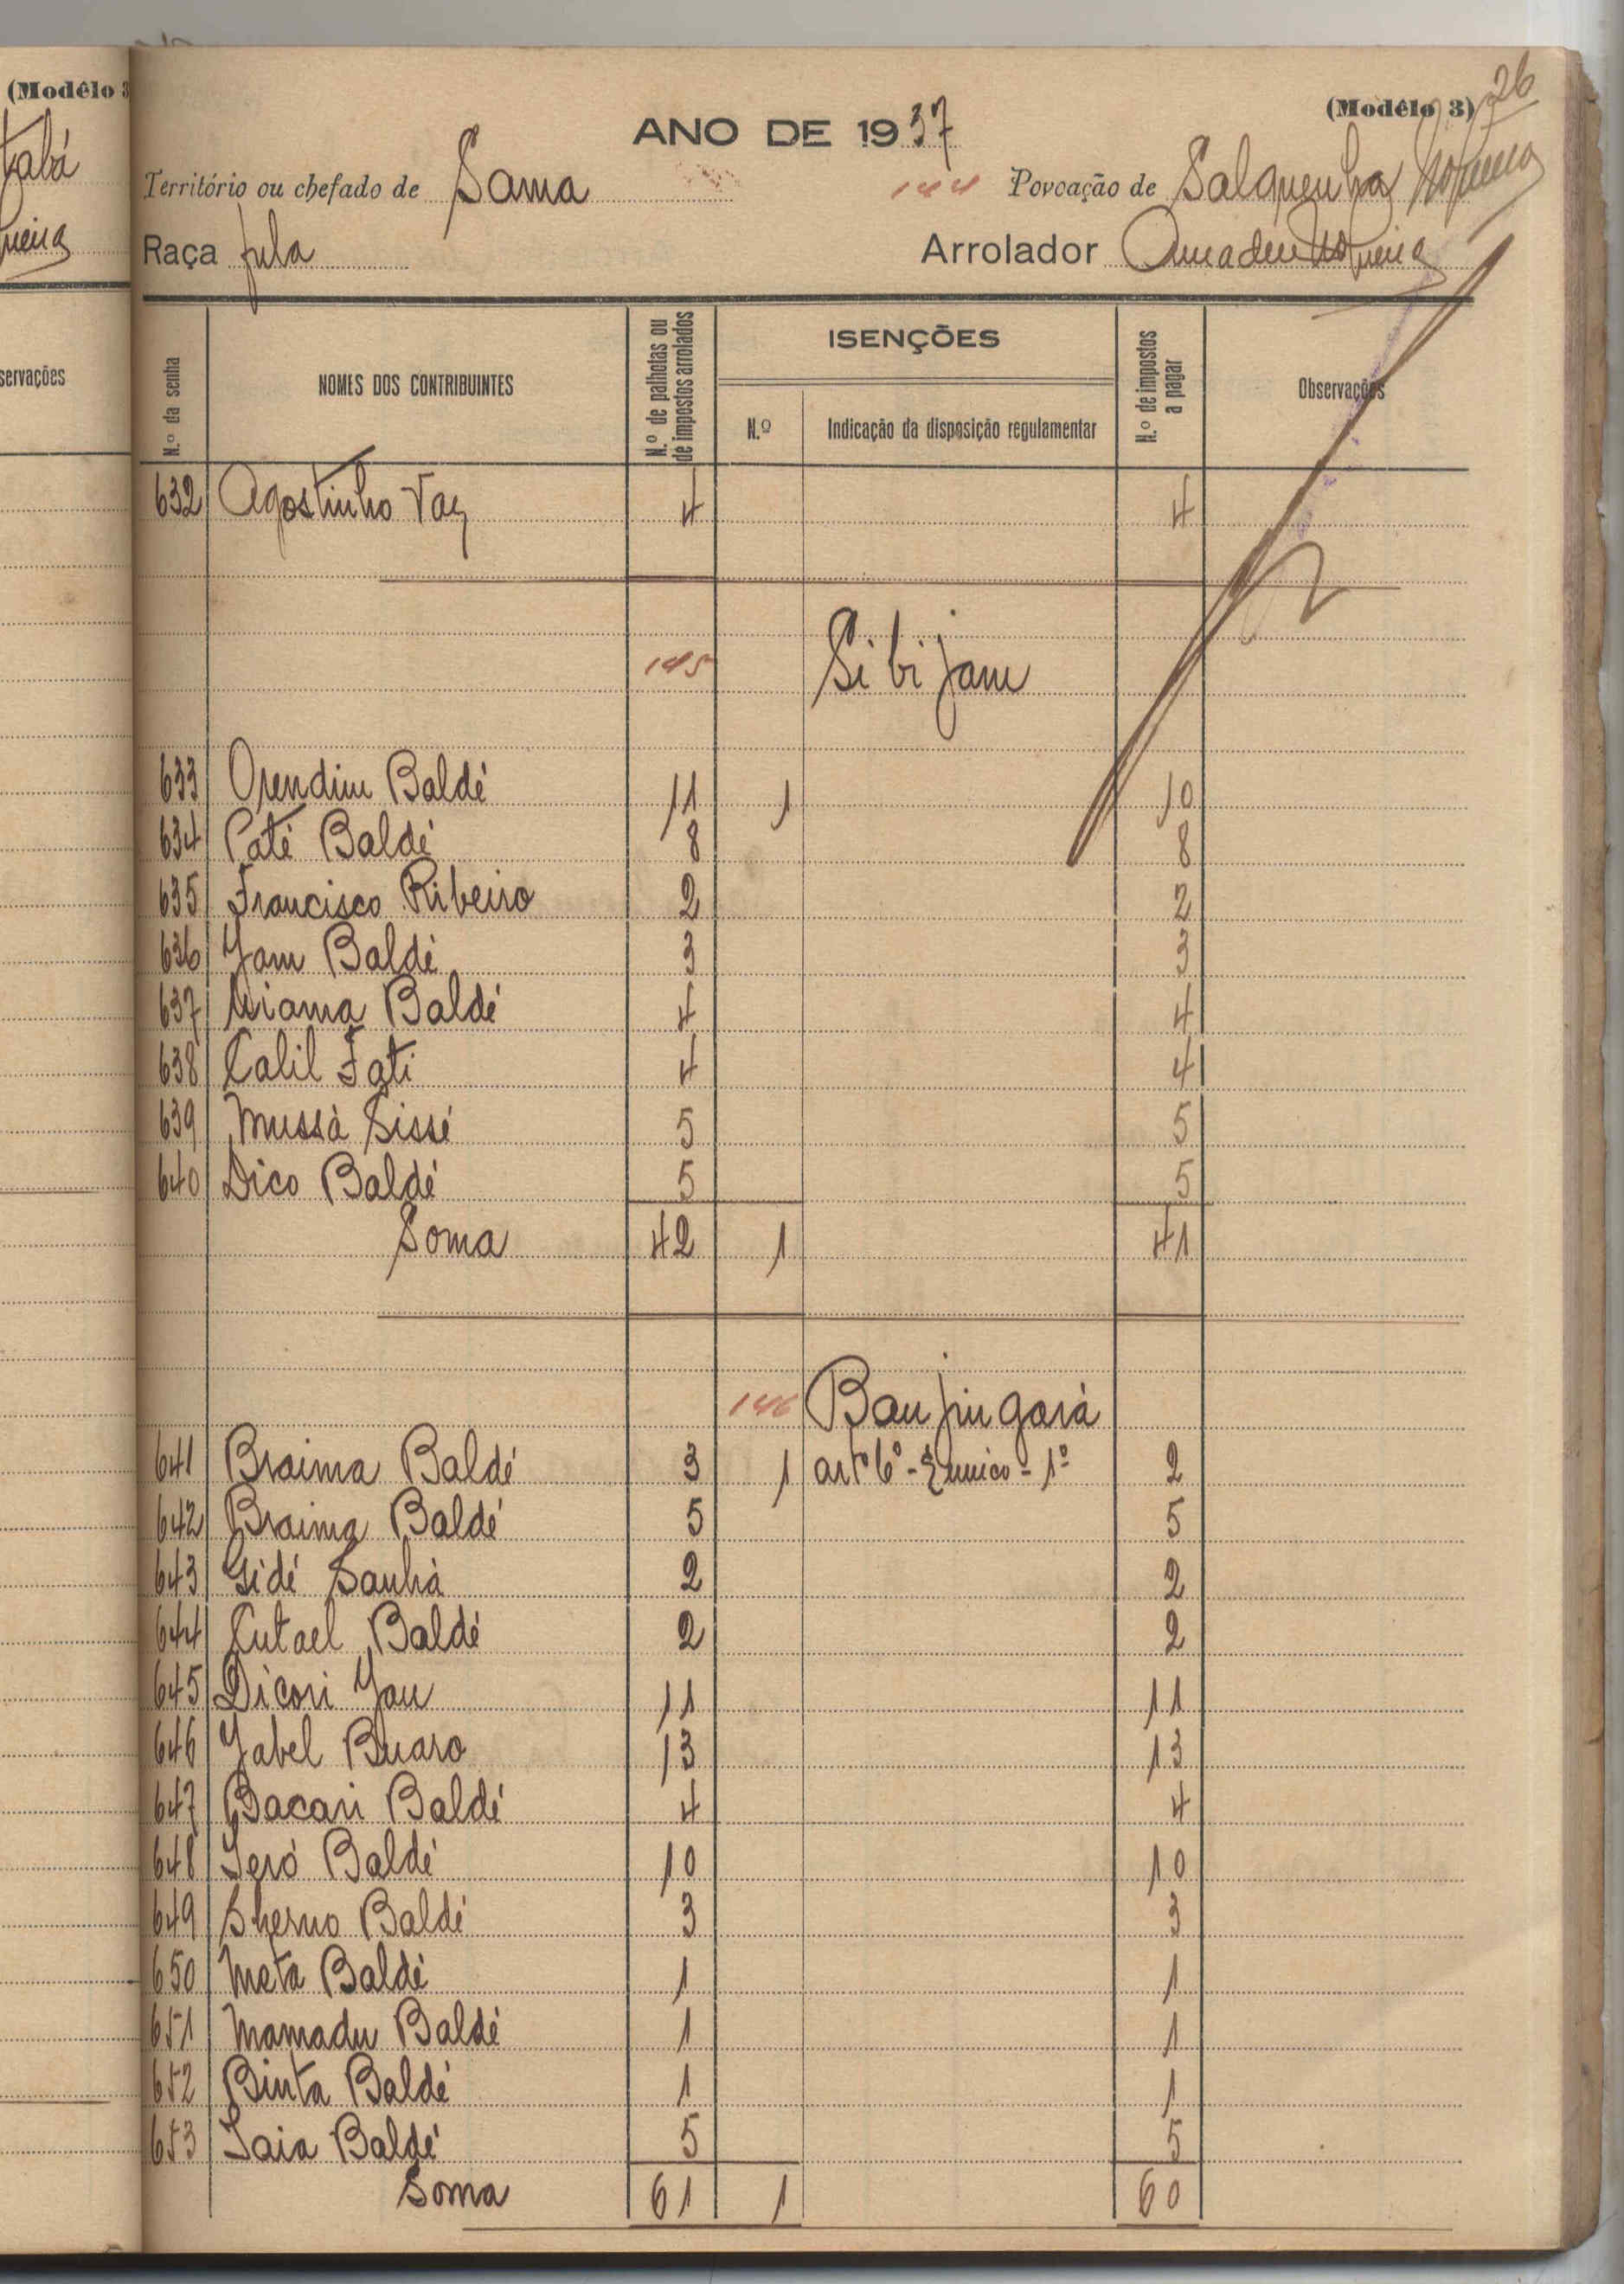 (Modêlo 3
tabá
servações
(Modêlo 3) 26
ANO DE 1937
Território ou chefado de Sama 144 Povoação de Salquenha
Raça fula Arrolador Amadeu Nogueira
N.º da senha NOMES DOS CONTRIBUINTES N.º de palhotas ou de impostos arrolados ISENÇÕES N.º de impostos a pagar Observações
N.º Indicação da disposição regulamentar
632 Agostinho Vaz 4 4
145 Sibijam
633 Orendim Baldé 11 1 10
634 Paté Baldé 8 8
635 Francisco Ribeiro 2 2
636 Yam Baldé 3 3
637 Uiama Baldé 4 4
638 Calil Fati 4 4
639 Mussà Sissé 5 5
640 Dico Baldé 5 5
Soma 42 1 41
146 Banjingarà
641 Braima Baldé 3 1 artº 6º - § unico - 1º 2
642 Braima Baldé 5 5
643 Gidé Sanhà 2 2
644 Cutael Baldé 2 2
645 Dicori Yau 11 11
646 Yabel Buaro 13 13
647 Bacari Baldé 4 4
648 Ieró Baldé 10 10
649 Sherno Baldé 3 3
650 Meta Baldé 1 1
651 Mamadu Baldé 1 1
652 Binta Baldé 1 1
653 Iaia Baldé 5 5
Soma 61 1 60